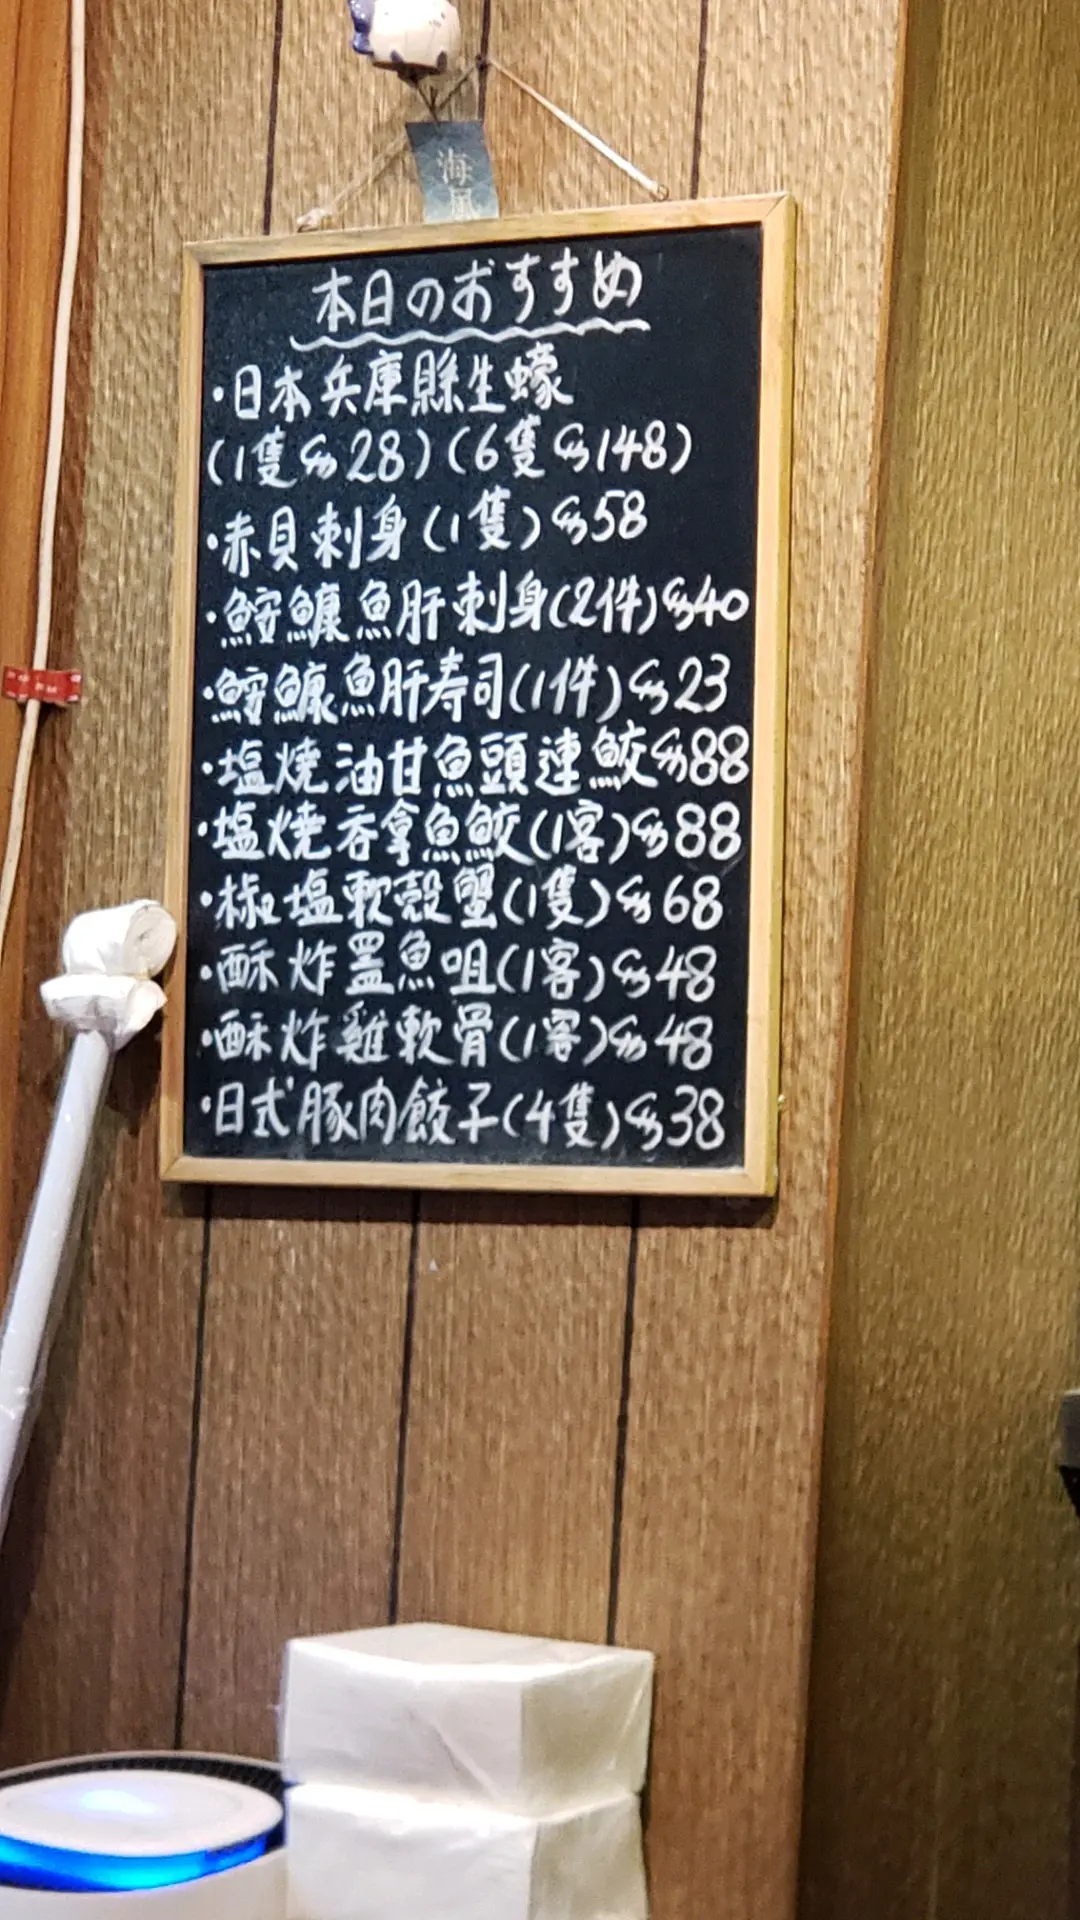 海風
本日のおすすめ
·日本兵庫縣生蠔
(1隻$28)(6隻$148)
·赤貝刺身(1隻)$58
·鮟鱇魚肝刺身(2件)$40
·鮟鱇魚肝寿司(1件)$23
·塩燒油甘魚頭連鮫$88
·塩燒吞拿魚鮫(1客)$88
·椒塩軟殼蟹(1隻)$68
·酥炸墨魚咀(1客)$48
·酥炸雞軟骨(1客)$48
·日式豚肉餃子(4隻)$38